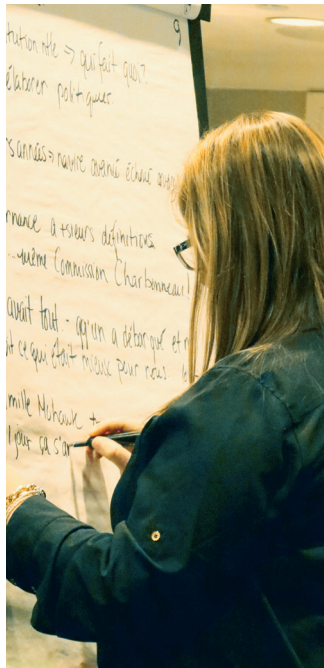 9
tution nlle → qui fait quoi?
élaborer politiques
s années → navire avarié échoué
rnance a +sieurs définitions
même Commission Charbonneau!
avait tout - qq'un a débarqué et n
t ce qui était mieux pour nous
mille Mohawk +
l jour ça s'ar